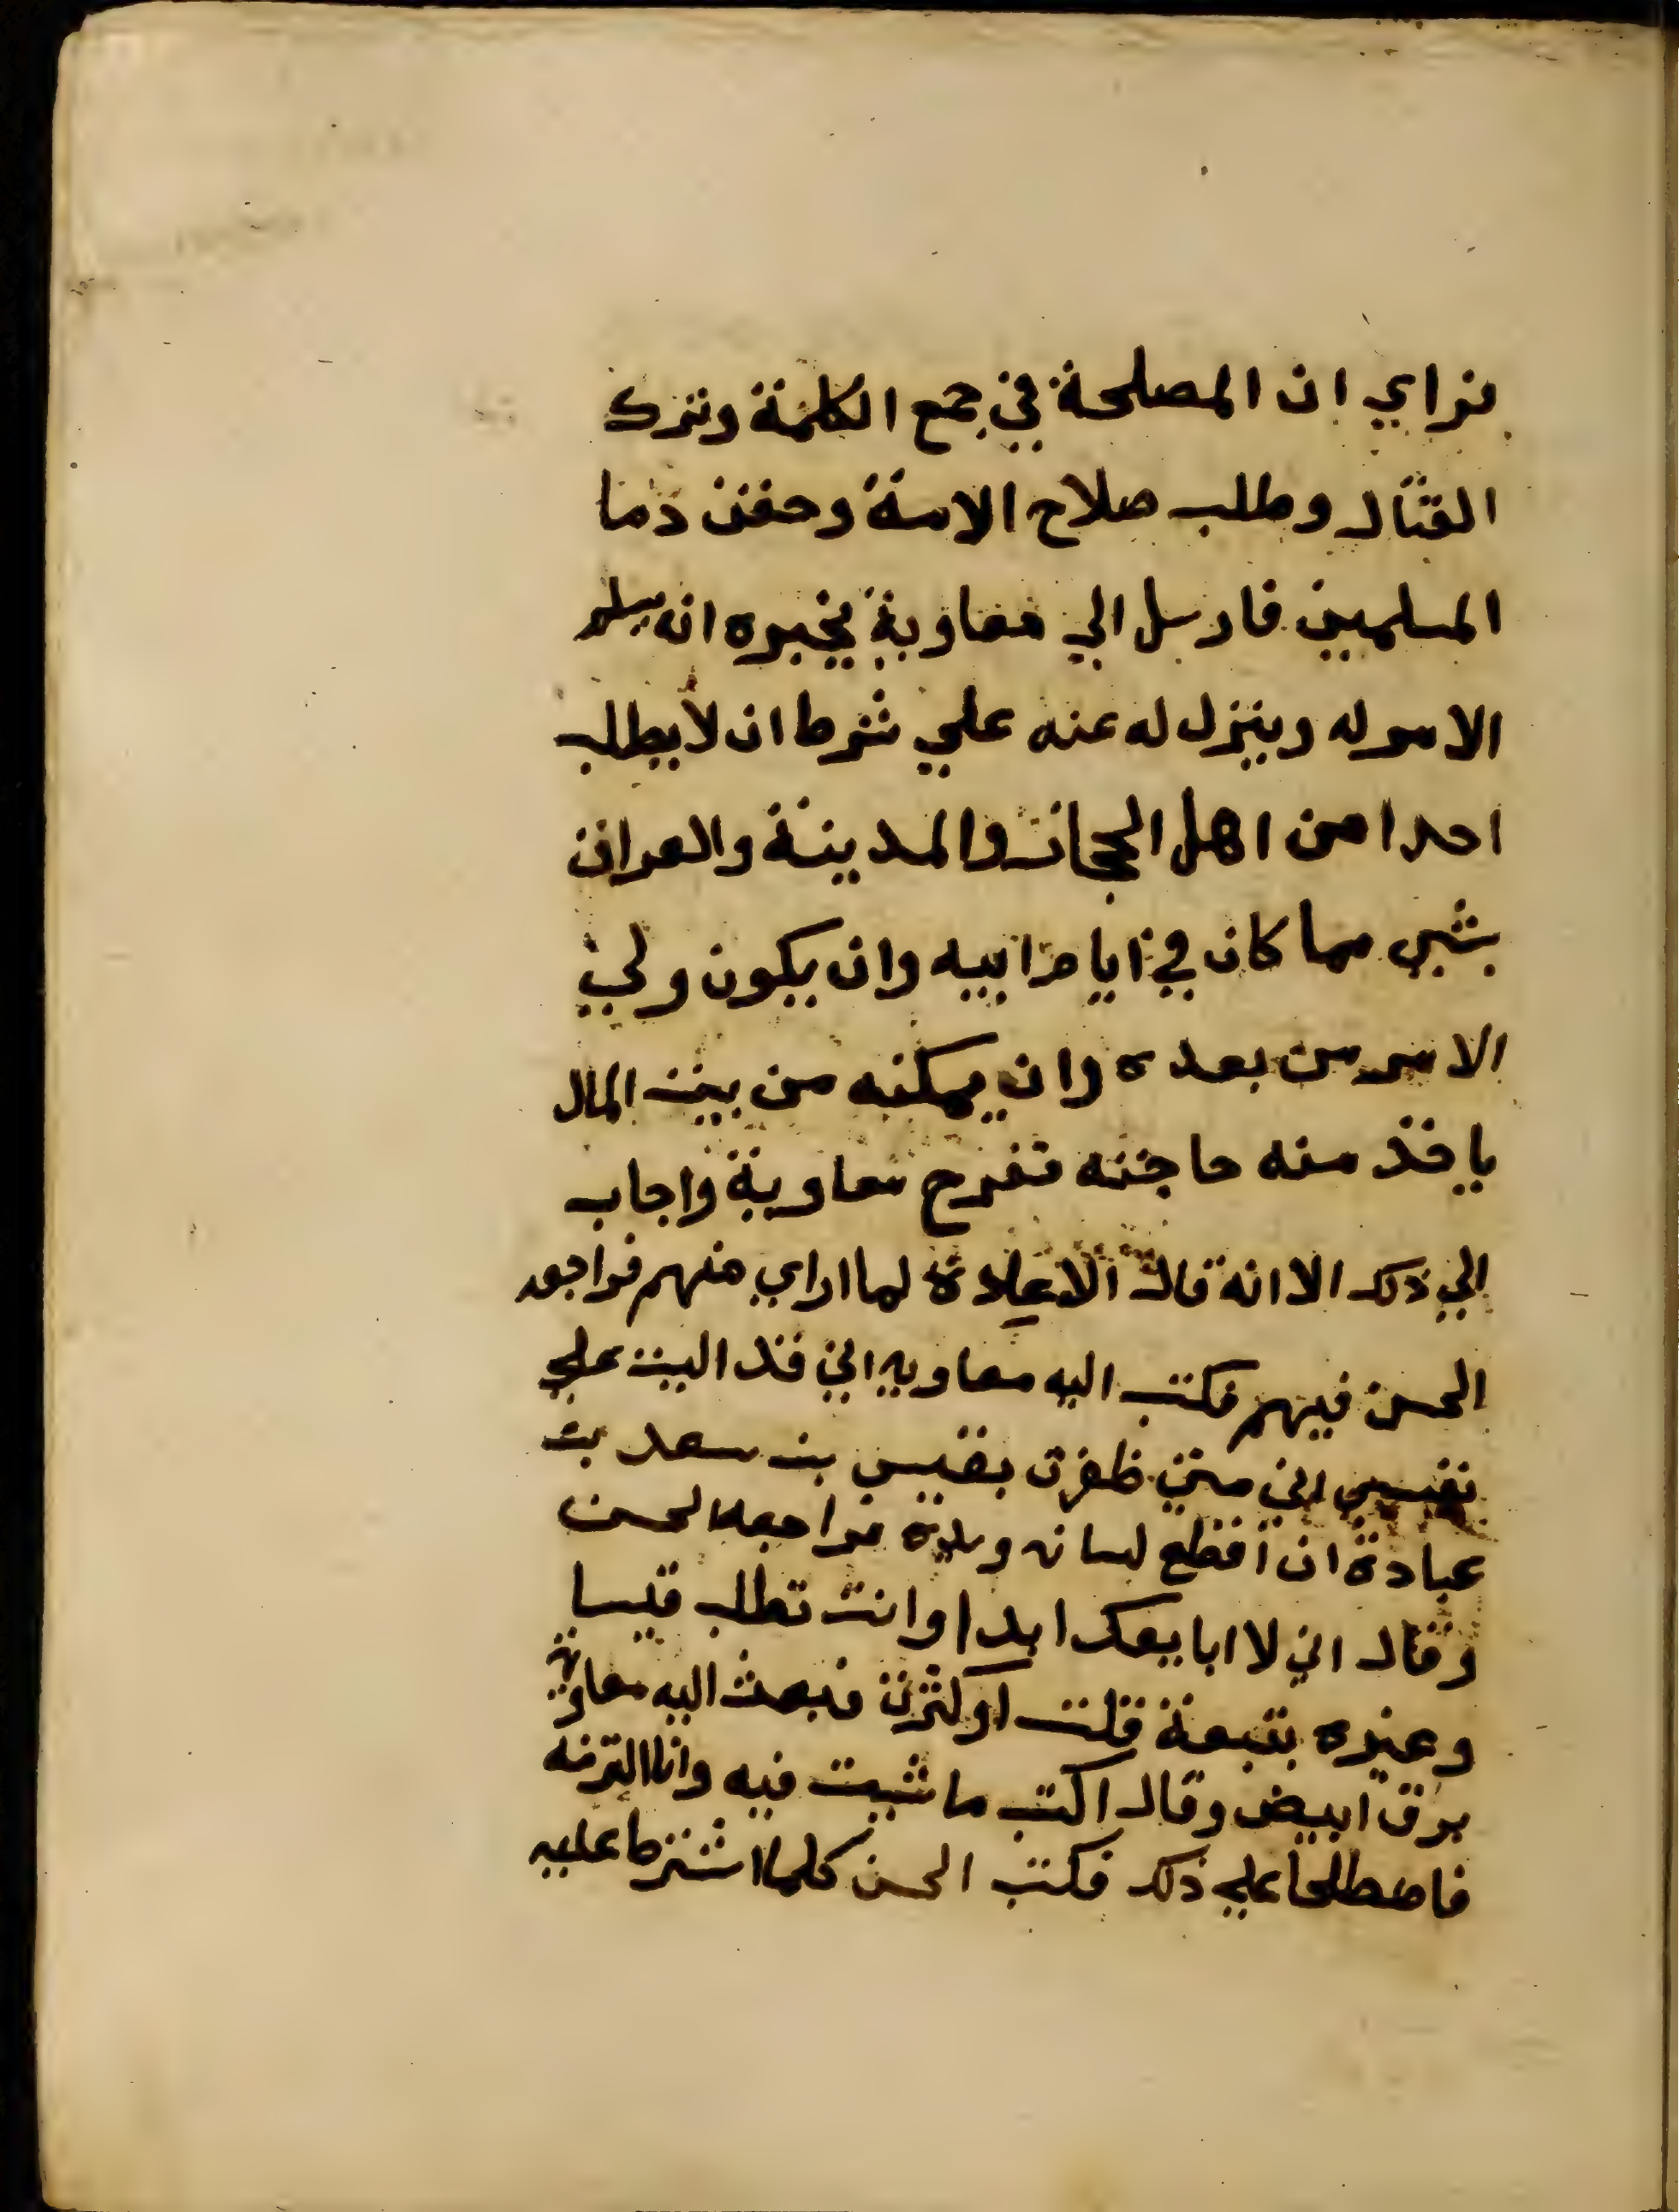 فراي ان المصلحة في جمع الكلمة وترك
القتال وطلب صلاح الامة وحقن دما
المسلمين فارسل الي معاوية يخبره انه يسلم
الامر له وينزل له عنه علي شرط ان لا يطلب
احدا من اهل الحجاز والمدينة والعراق
بشي مما كان في ايام ابيه وان يكون ولي
الامر من بعده وان يمكنه من بيت المال
ياخذ منه حاجته ففرح معاوية واجاب
الي ذلك الا انه قال الا عادة لما اراي منهم فراجعه
الحسن فيهم فكتب اليه معاويه اني قد اليت علي
نفسي اني متي ظفرت بقيس بن سعد بن
عبادة ان اقطع لسانه ويده فراجعه الحسن
وقال اني لا ابايعك ابدا وانت تطلب قيسا
وغيره بتبعة قلت او كثرت فبعث اليه معاوية
برق ابيض وقال اكتب ما شيت فيه وانا التزمه
فاصطلحا علي ذلك فكتب الحسن كلما اشترط عليه